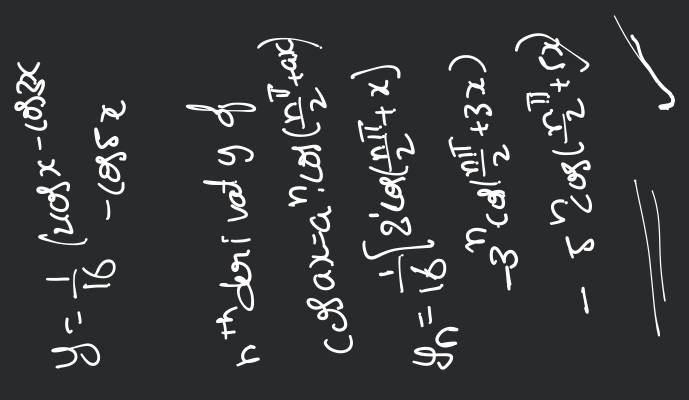 y = 1/16 (2cosx - cos3x
- cos5x
nth derivaty of
cosax = a^n. cos(nπ/2 + ax)
yn = 1/16 [2' cos(nπ/2 + x)
-3^n cos(nπ/2 + 3x)
- 5^n cos(nπ/2 + 5x)